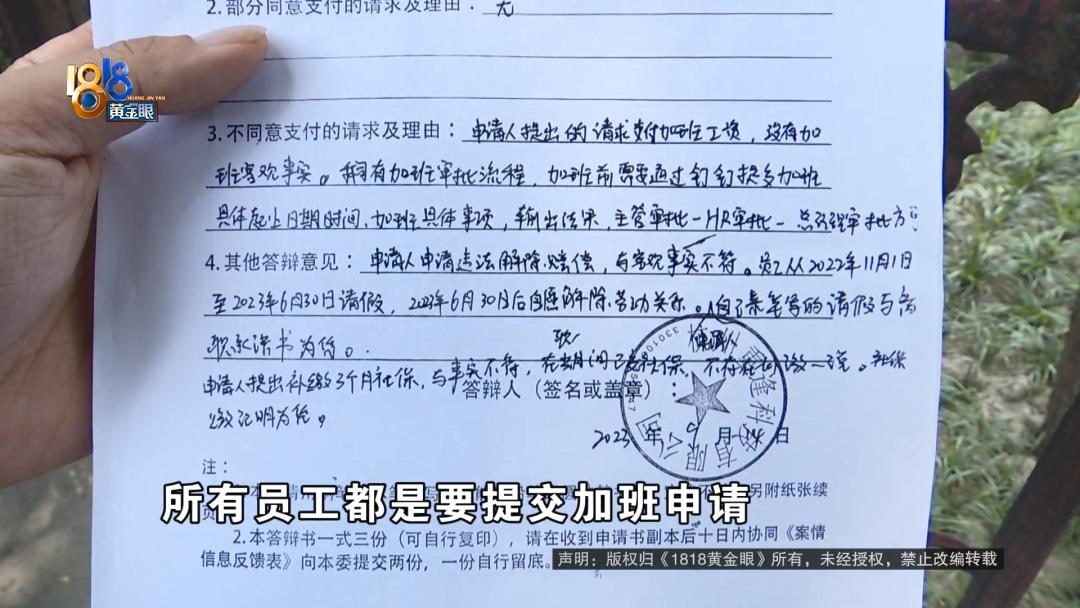 2.部分同意支付的请求及理由：无
1818
HUANG JIN YAN
黄金眼
3.不同意支付的请求及理由：申请人提出的请求支付加班工资，没有加
班客观事实。拥有加班审批流程，加班前需要通过钉钉提交加班
具体起止日期时间、加班具体事项，输出结果，主管审批一HR审批一总经理审批方可
4.其他答辩意见：申请人申请违法解除赔偿，与客观事实不符。员工从2022年11月1日
至2023年6月30日请假，2023年6月30日后自愿解除劳动关系。
职承诺书为任。
申请人提出补缴3个月社保，与事实不符，在职期间已缴社保，不存在
答辩人（签名或盖章）：
缴记明为任。
2023 年 月 日
注：
所有员工都是要提交加班申请
另附纸张续
页
2.本答辩书一式三份（可自行复印），请在收到申请书副本后十日内协同《案情
信息反馈表》向本委提交两份，一份自行留底。
声明：版权归《1818黄金眼》所有，未经授权，禁止改编转载